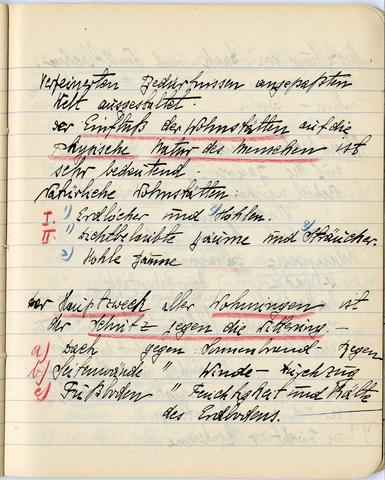 verfeinerten Bedürfnissen angepaßten
Welt ausgestaltet.
Der Einfluß der Wohnstätten auf die
physische Natur des Menschen ist
sehr bedeutend.
Natürliche Wohnstätten:
I. 1) Erdlöcher und 2) Höhlen.
II. 1) Dichtbelaubte Bäume und 3) Sträucher
2) hohle Bäume
Der Hauptzweck aller Wohnungen ist
der Schutz gegen die Witterung. –
a) Dach gegen Sonnenbrand - Regen
b) Seitenwände " Winde - Luftzug
c) Fußboden " Feuchtigkeit und Kälte
des Erdbodens.